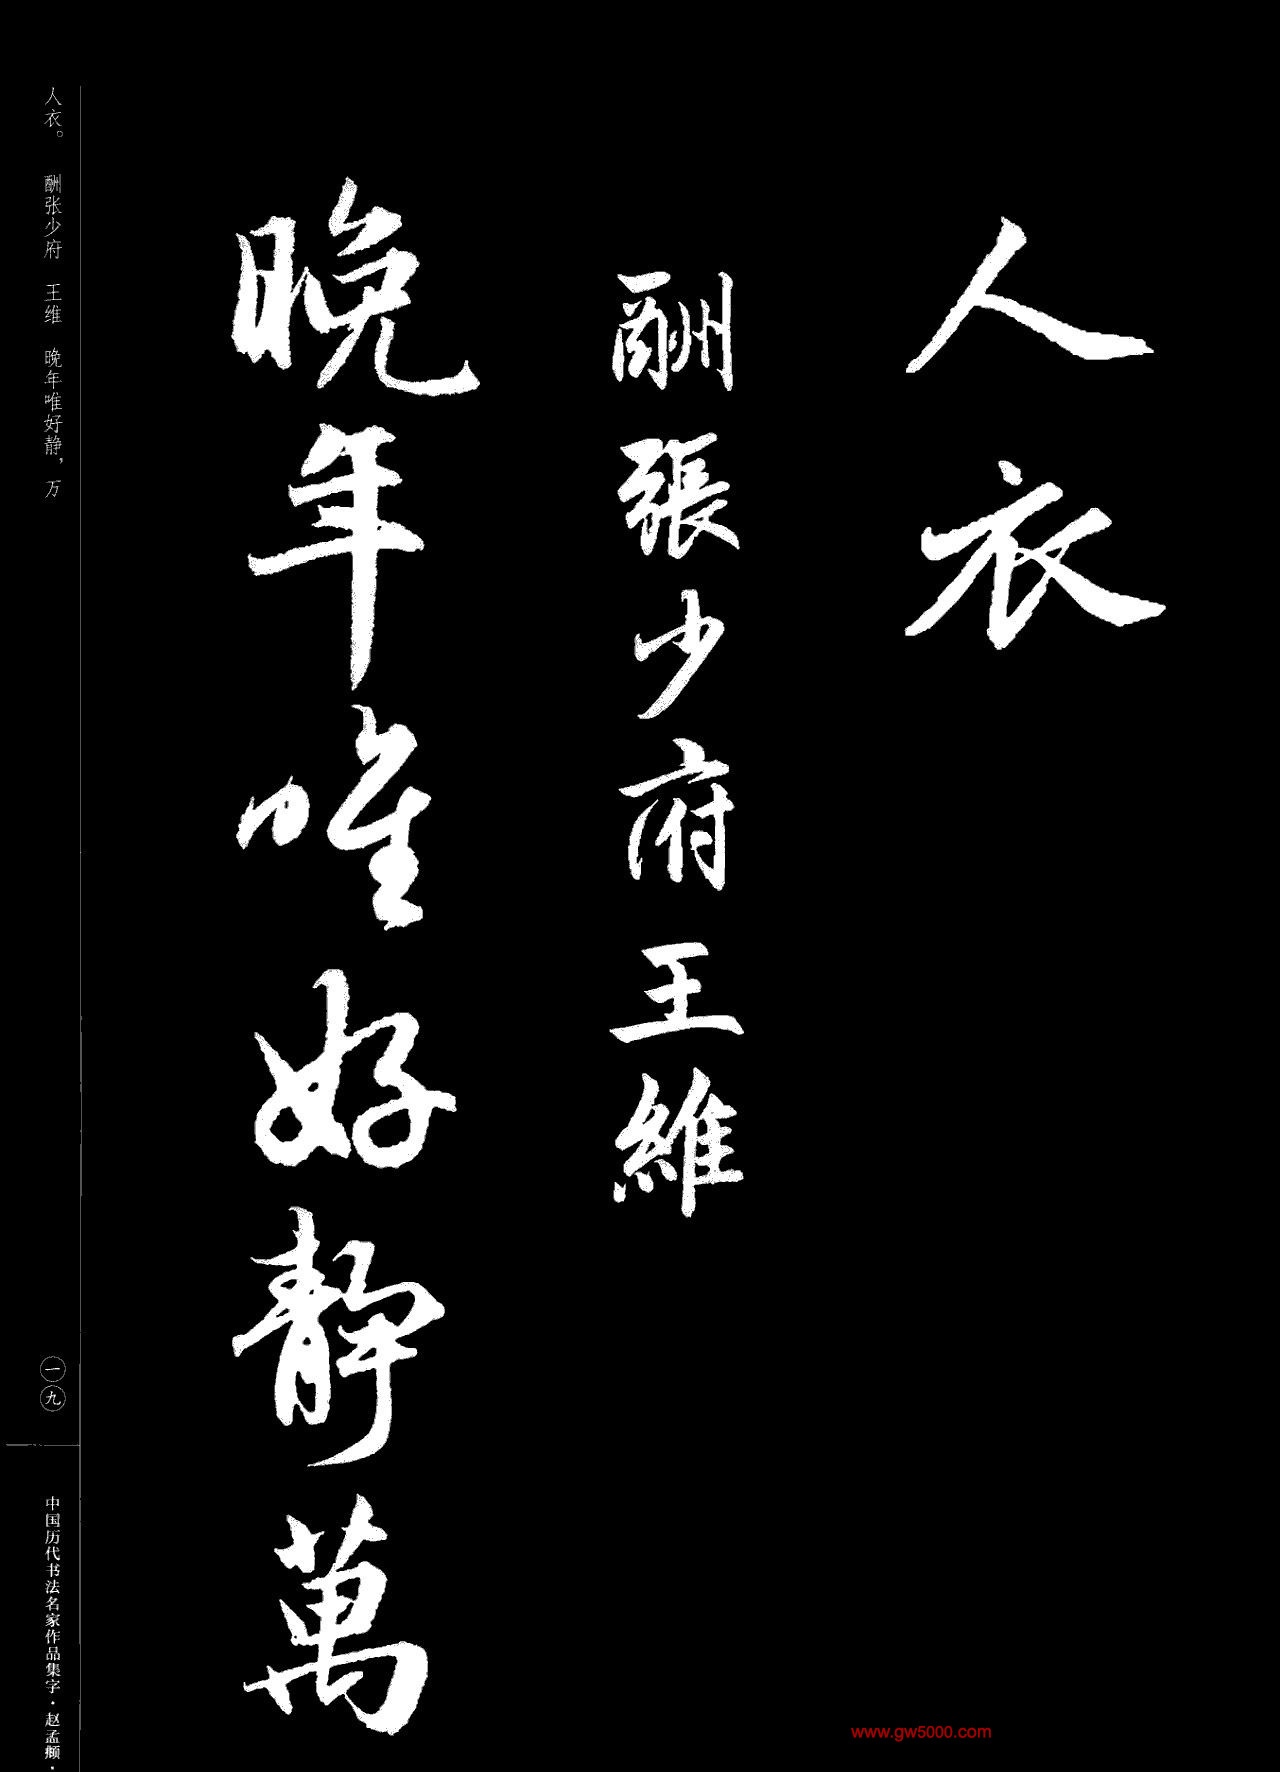 人衣
酬張少府王維
晚年唯好靜萬
人衣。 酬张少府 王维 晚年唯好静，万
一九
中国历代书法名家作品集字·赵孟頫·
www.gw5000.com